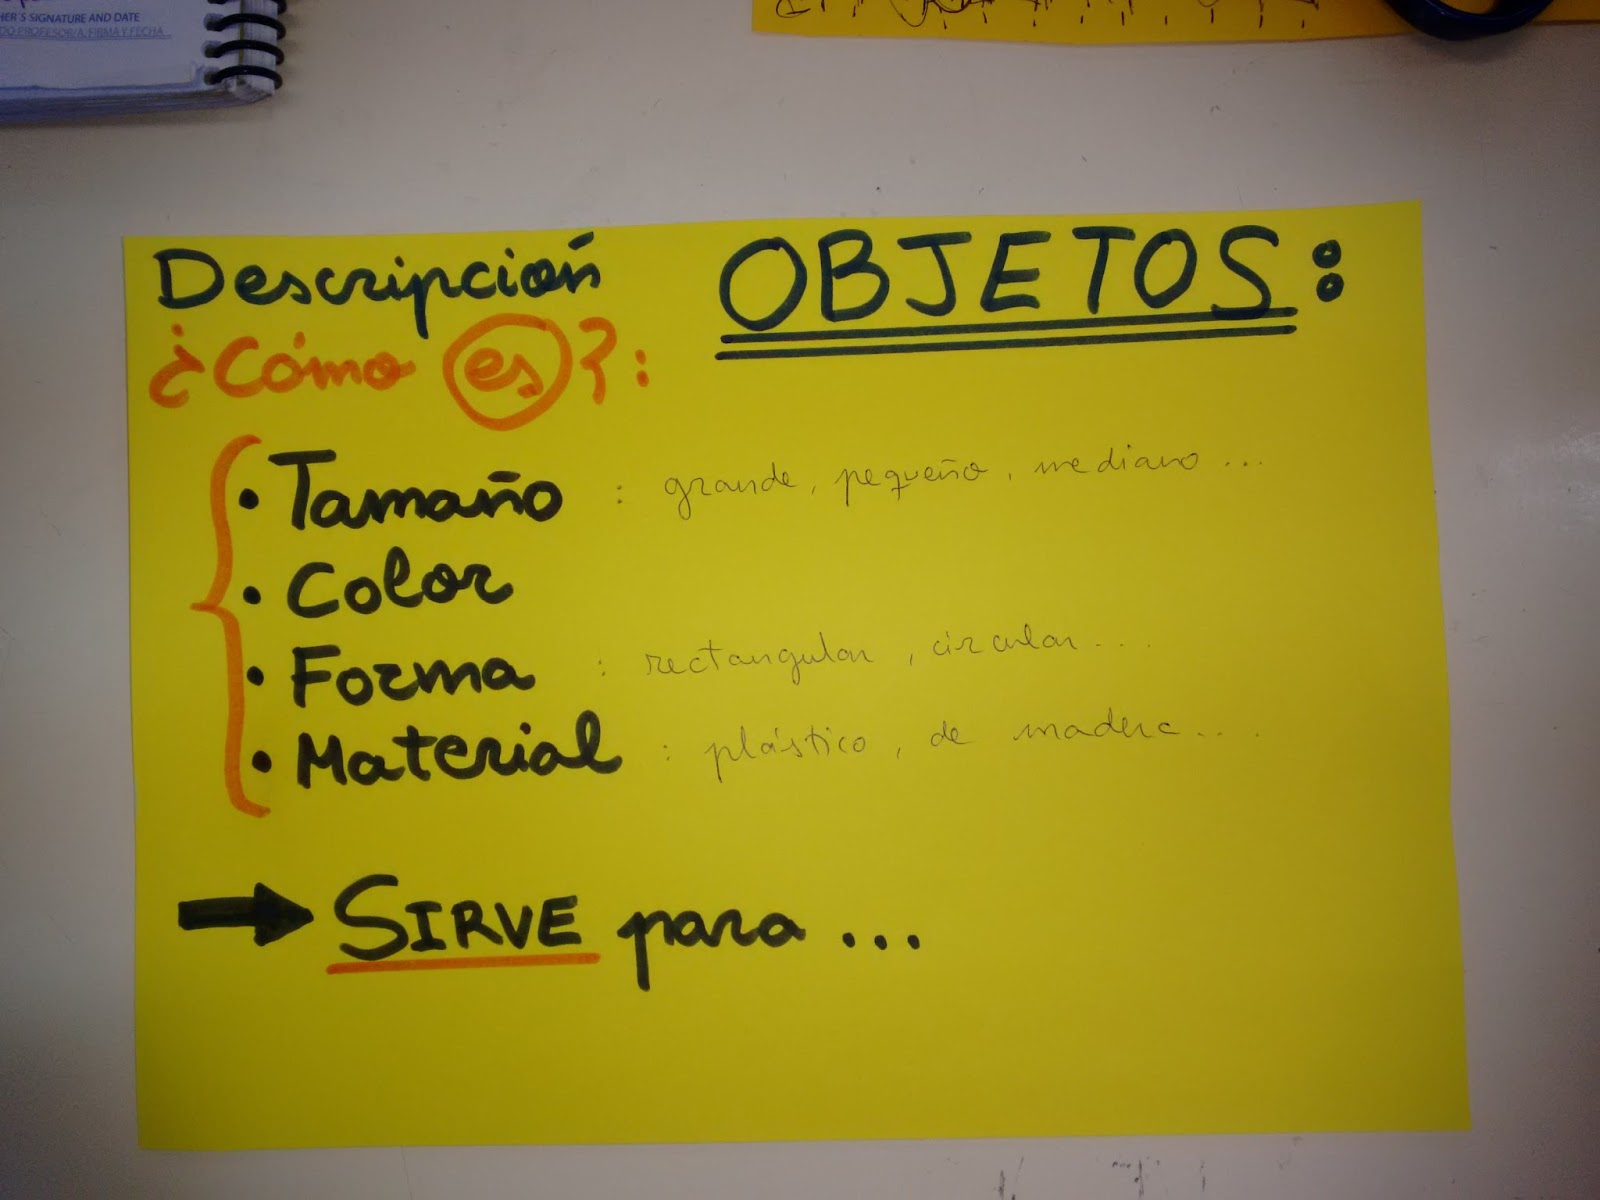 HER'S SIGNATURE AND DATE
DO PROFESOR/A, FIRMA Y FECHA
Descripción OBJETOS:
¿Cómo es?:
• Tamaño : grande, pequeño, mediano...
• Color
• Forma : rectangular, circular....
• Material : plástico, de madera....
→ SIRVE para ...